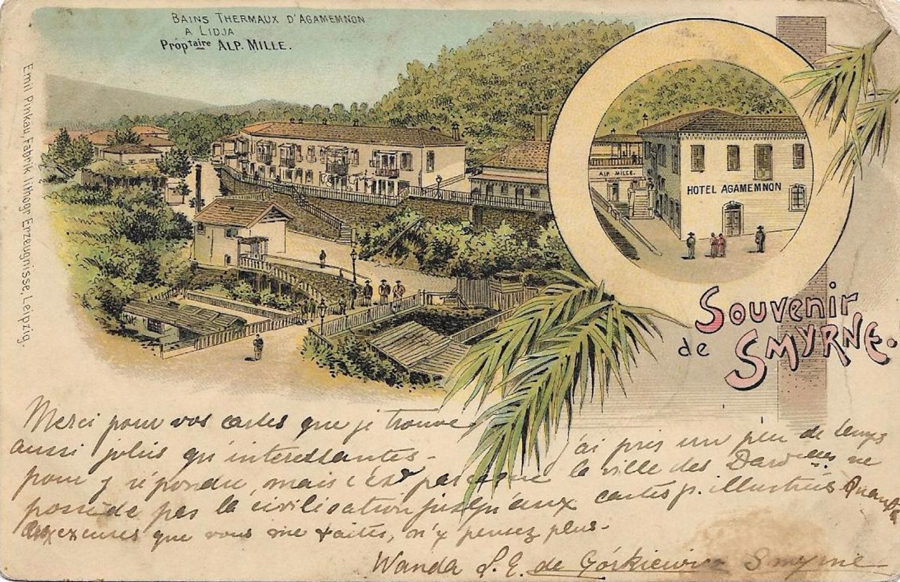 BAINS THERMAUX D'AGAMEMNON
A LIDJA
Proptaire ALP. MILLE.
Emil Pinkau, Fabrik lithogr. Erzeugnisse, Leipzig.
ALP. MILLE.
HOTEL AGAMEMNON
Souvenir
de SMYRNE.
Merci pour vos cartes que je trouve
aussi jolies qu'interessantes. j'ai pris un peu de temps
pour y répondre, mais c'est que la ville des ne
possede pas la civilisation jusqu'aux cartes p. illustrées Quant
aux excuses que vous me faites, n'y pensez plus.
Wanda S. G. de Górkiewicz Smyrne